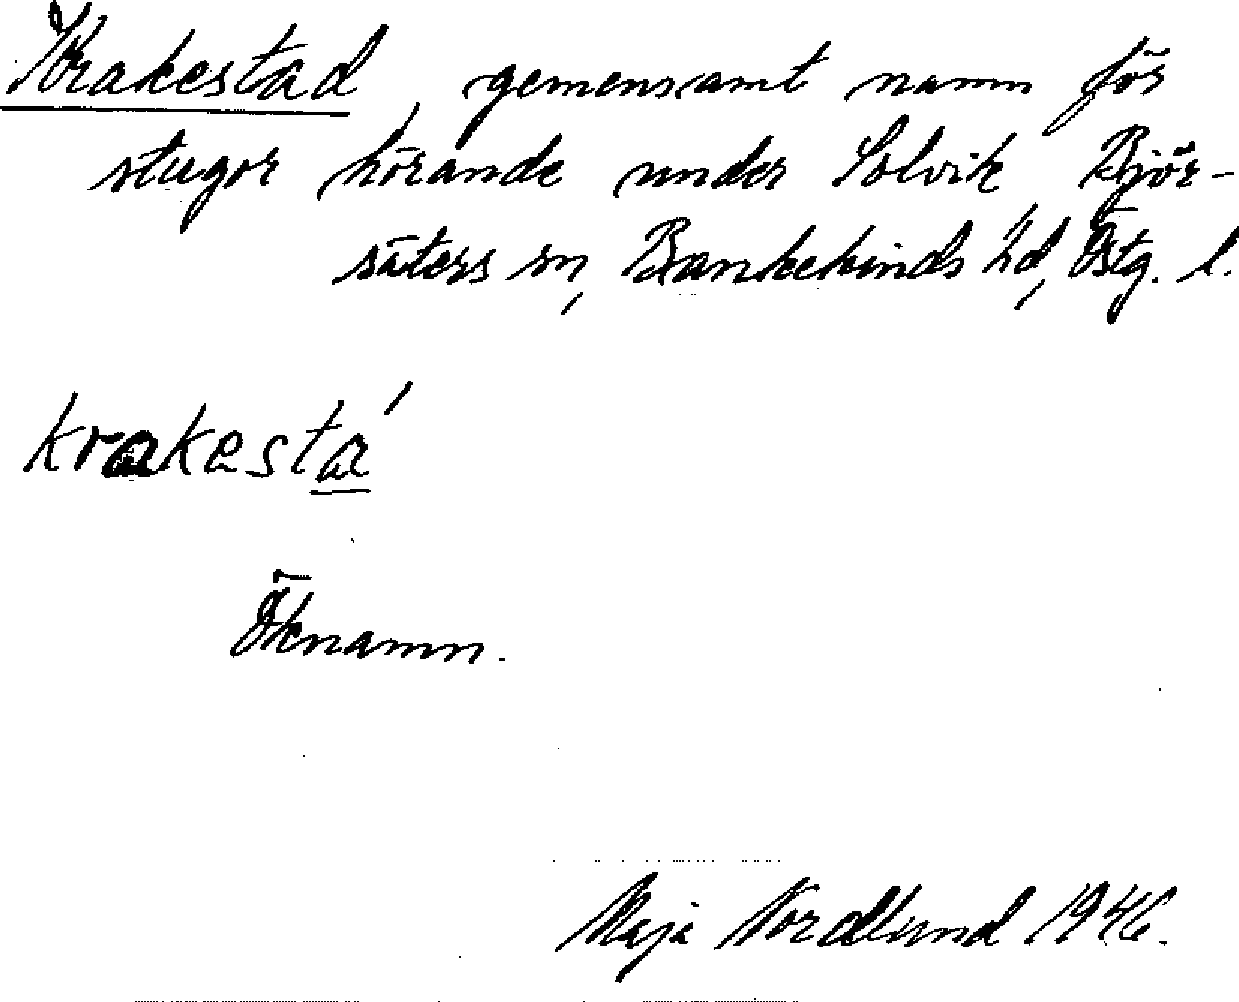 Krakestad, gemensamt namn för
stugor hörande under Solvik Björ-
säters sn, Bankekinds hd, Östg. l.
krakestá
Öknamn.
Maja Nordlund 1946.